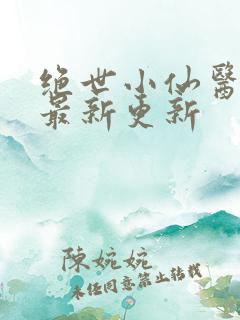 绝世小仙醫
最新更新
陳婉婉
未经同意禁止转载